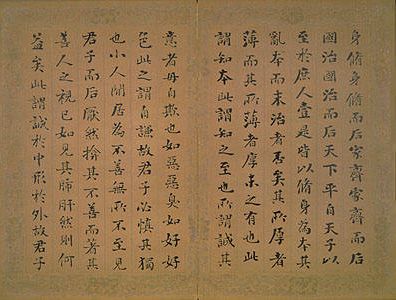 身脩身脩而后家齊家齊而后
國治國治而后天下平自天子以
至於庶人壹是皆以脩身為本其
亂本而末治者否矣其所厚者
薄而其所薄者厚未之有也此
謂知本此謂知之至也所謂誠其
意者毋自欺也如惡惡臭如好好
色此之謂自謙故君子必慎其獨
也小人閒居為不善無所不至見
君子而后厭然揜其不善而著其
善人之視己如見其肺肝然則何
益矣此謂誠於中形於外故君子